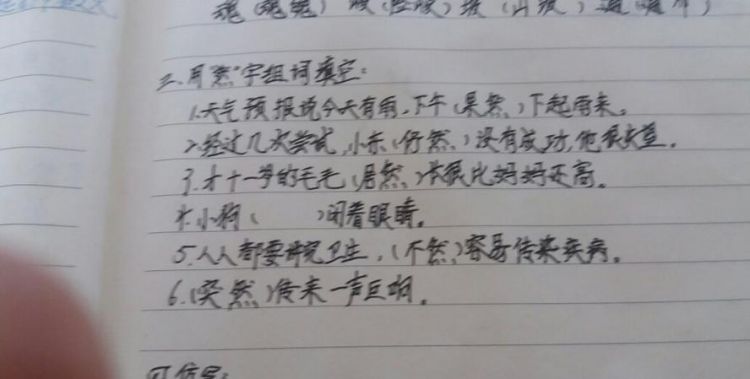 魂（魂魄）
二.用"然"字组词填空：
1.天气预报说今天有雨，下午（果然）下起雨来。
2.经过几次尝试，小东（仍然）没有成功，他很失望。
3.才十一岁的毛毛（居然）长很比妈妈还高。
4.小狗（ ）闭着眼睛。
5.人人都要讲究卫生，（不然）容易传染疾病。
6.（突然）传来一声巨响。